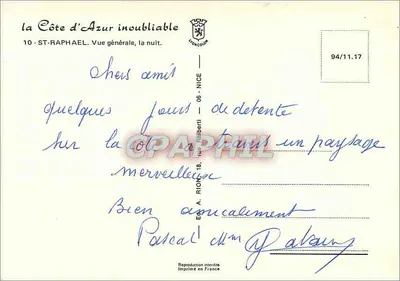 la Côte d'Azur inoubliable
10 - ST-RAPHAEL. Vue générale, la nuit.
LYONCOLOR
94/11.17
chers amis
quelques jours de detente
sur la cote dans un paysage
merveilleux
Bien amicalement
Pascal Mm
Ed. A. RION - 18, rue - 06 - NICE
CARTAPHIL
Reproduction interdite
Imprimé en France